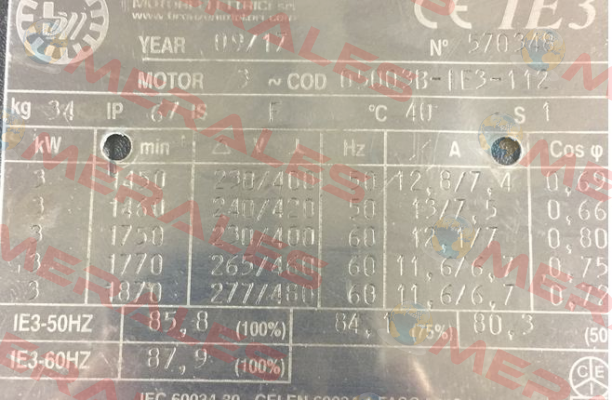 MOTORI ELETTRICI SPA
CE IE3
YEAR 09/17 N° 570348
MOTOR 3 ~ COD 65003B-IE3-112
kg 34 IP 67 IS F °C 40 S 1
kW min △ V Hz A Cos φ
3 1450 230/400 50 12,8/7,4 0,69
3 1460 240/420 50 13/7,5 0,66
3 1750 230/400 60 0,80
3 1770 265/460 60 11,6/6,7 0,75
3 1870 277/480 60 11,6/6,7
IE3-50HZ 85,8 (100%) 84,1 (75%) 80,3 (50
IE3-60HZ 87,9 (100%)
MERALES